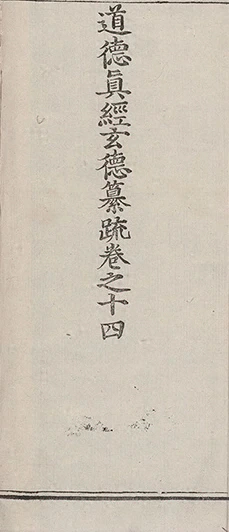 道德眞經玄德纂疏卷之十四